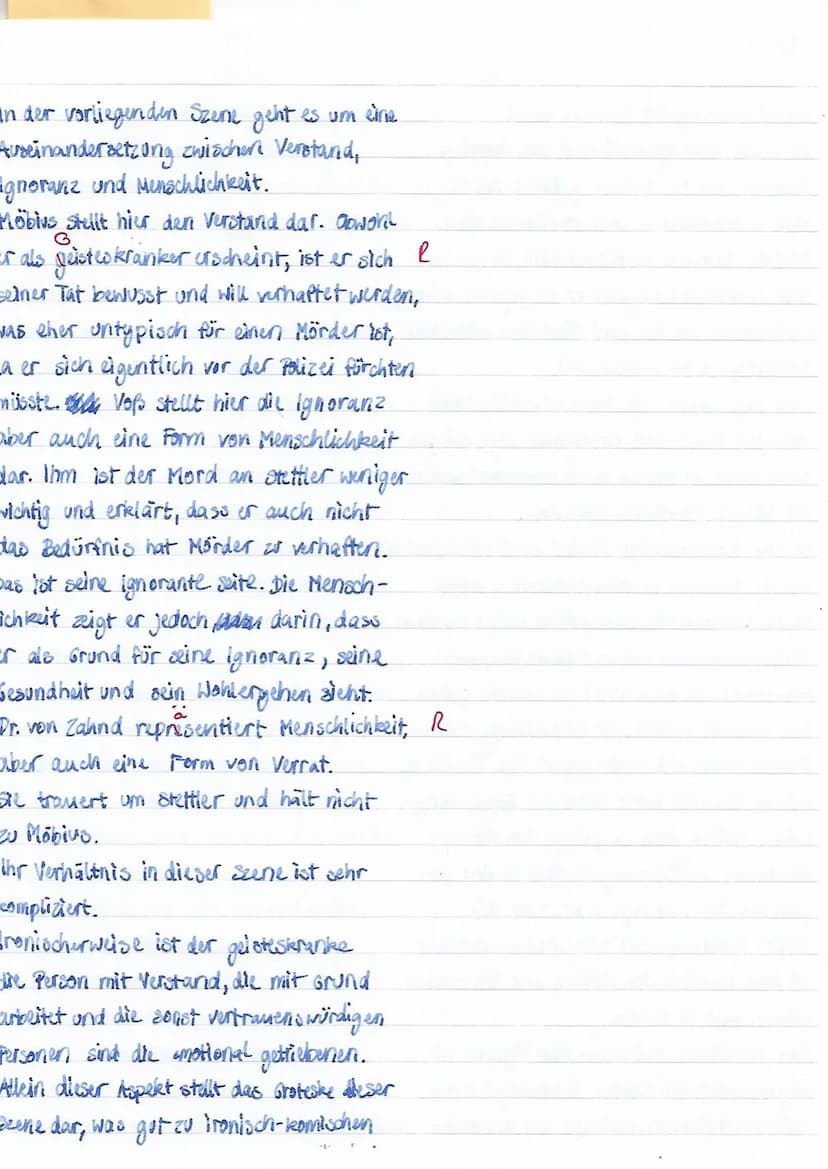 In der vorliegenden Szene geht es um eine
Auseinandersetzung zwischen Verstand,
Ignoranz und Menschlichkeit.
Möbius stellt hier den Verstand dar. Obwohl
G
er als geisteskranker erscheint, ist er sich R
seiner Tat bewusst und will verhaftet werden,
was eher untypisch für einen Mörder ist,
da er sich eigentlich vor der Polizei fürchten
müsste. Voß stellt hier die Ignoranz
aber auch eine Form von Menschlichkeit
dar. Ihm ist der Mord an Stettler weniger
wichtig und erklärt, dass er auch nicht
das Bedürfnis hat Mörder zu verhaften.
Das ist seine ignorante Seite. Die Mensch-
lichkeit zeigt er jedoch darin, dass
er als Grund für seine Ignoranz, seine
Gesundheit und sein Wohlergehen sieht.
ä
Dr. von Zahnd represäntiert Menschlichkeit, R
aber auch eine Form von Verrat.
Sie trauert um Stettler und hält nicht
zu Möbius.
Ihr Verhältnis in dieser Szene ist sehr
kompliziert.
Ironischerweise ist der geisteskranke
die Person mit Verstand, die mit Grund
arbeitet und die sonst vertrauenswürdigen
Personen sind die emotional getriebenen.
Allein dieser Aspekt stellt das Groteske dieser
Szene dar, was gut zu ironisch-komischen